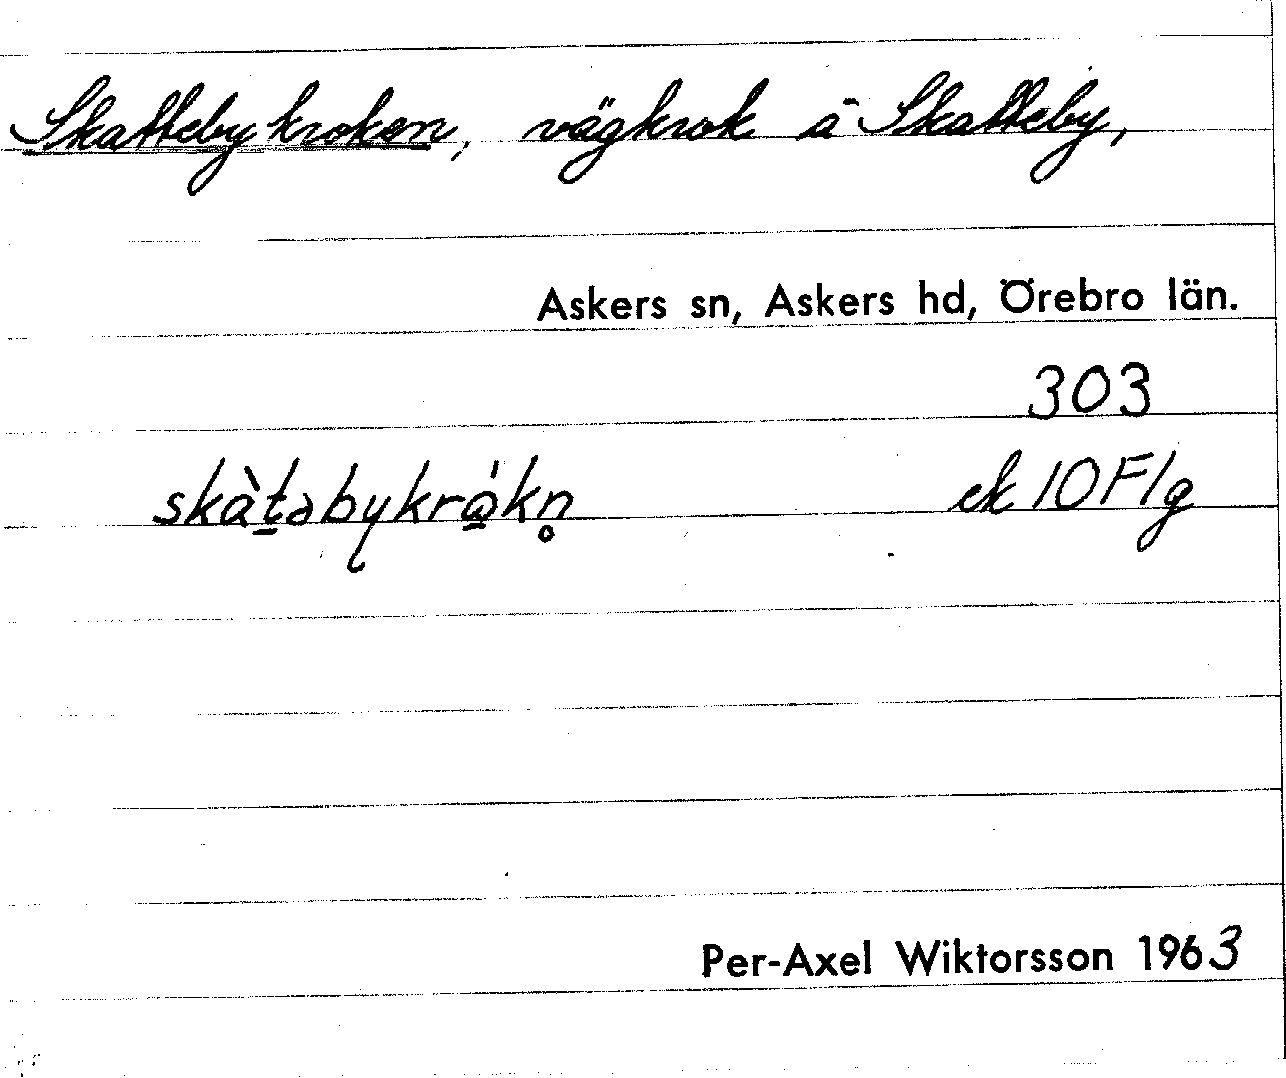 Skattebykroken, vägkrok å Skatteby,
Askers sn, Askers hd, Örebro län.
303
skàt̠abykrå̠̍kn̥ ek 10F1g
Per-Axel Wiktorsson 1963